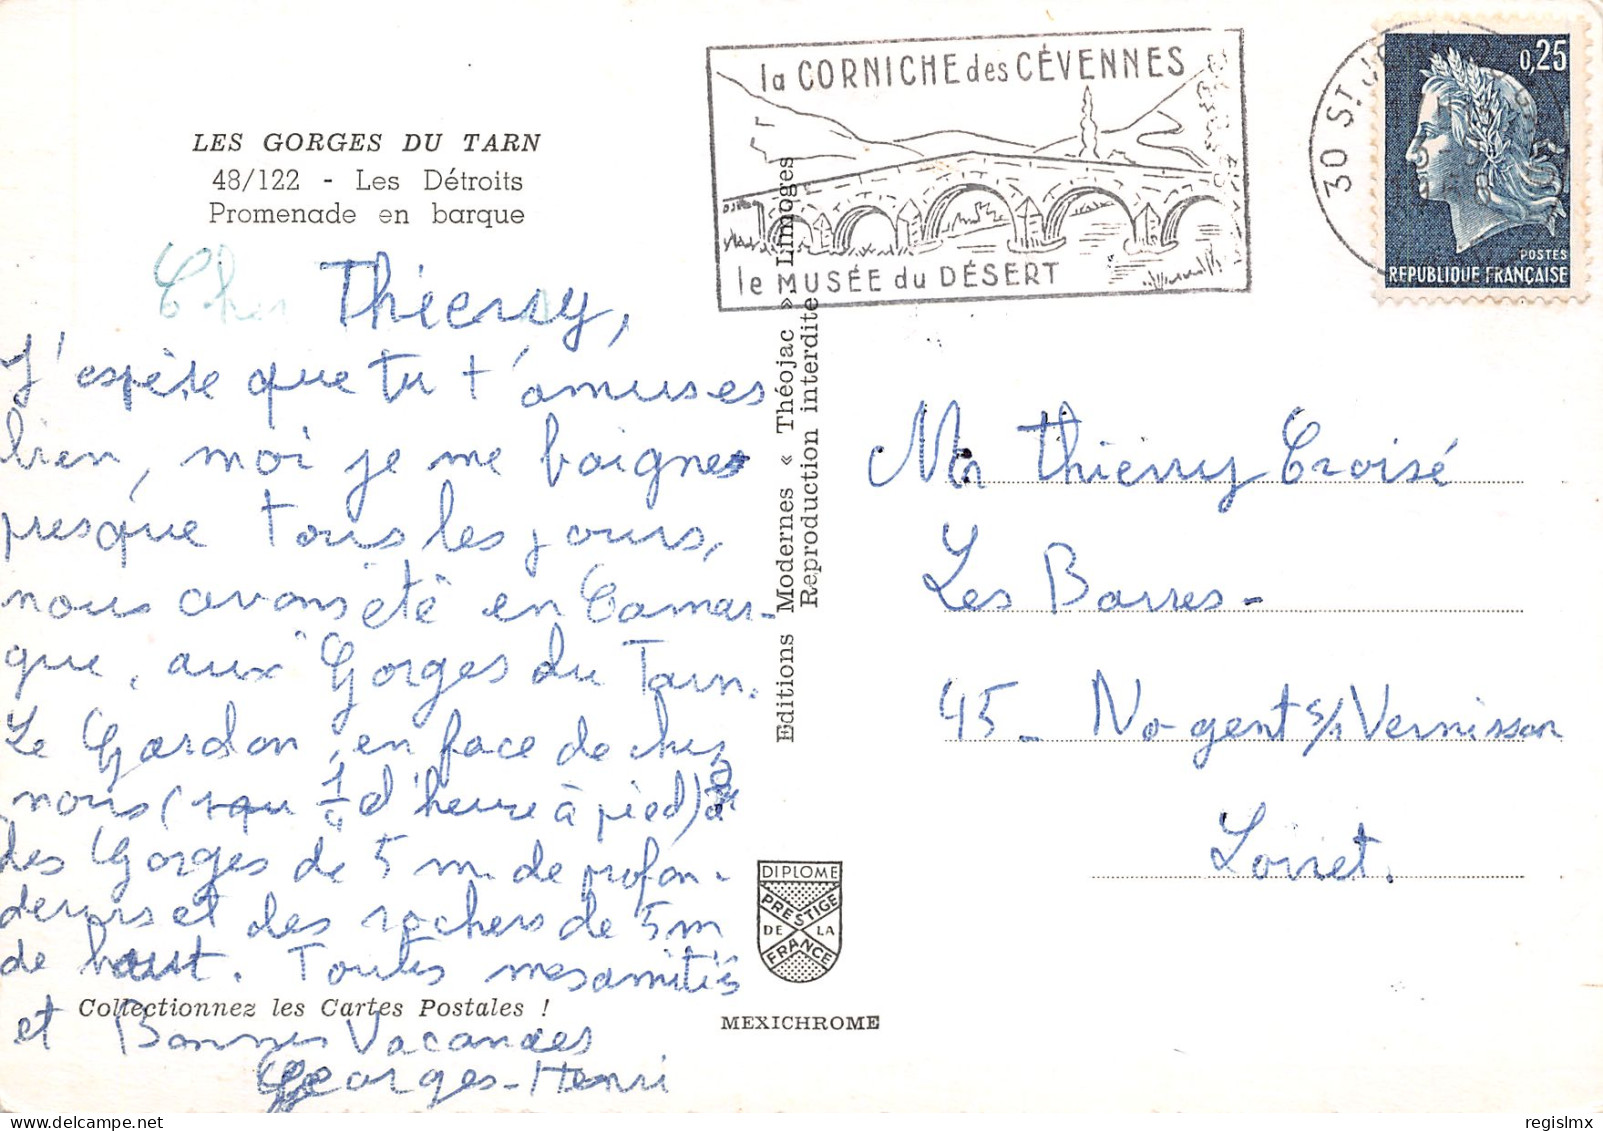 LES GORGES DU TARN
48/122 - Les Détroits
Promenade en barque
Cher Thierry,
J'espère que tu t'amuses
bien, moi je me baigne
presque tous les jours,
nous avons été en Camar-
gue, aux Gorges du Tarn.
Le Gardon, en face de chez
nous ( 1/4 d'heure à pied) a
des Gorges de 5 m de profon-
deurs et des rochers de 5m
de haut. Toutes mes amitiés
et Bonnes Vacances
Georges-Henri
Collectionnez les Cartes Postales !
Editions Modernes « Théojac » Limoges
Reproduction interdite
DIPLOME
PRESTIGE
DE LA
FRANCE
MEXICHROME
la CORNICHE des CÉVENNES
le MUSÉE du DÉSERT
30 ST J
0,25
POSTES
REPUBLIQUE FRANÇAISE
Mr Thierry Croisé
Les Barres-
45- No-gent s/s Vernisson
Loiret.
regislmx